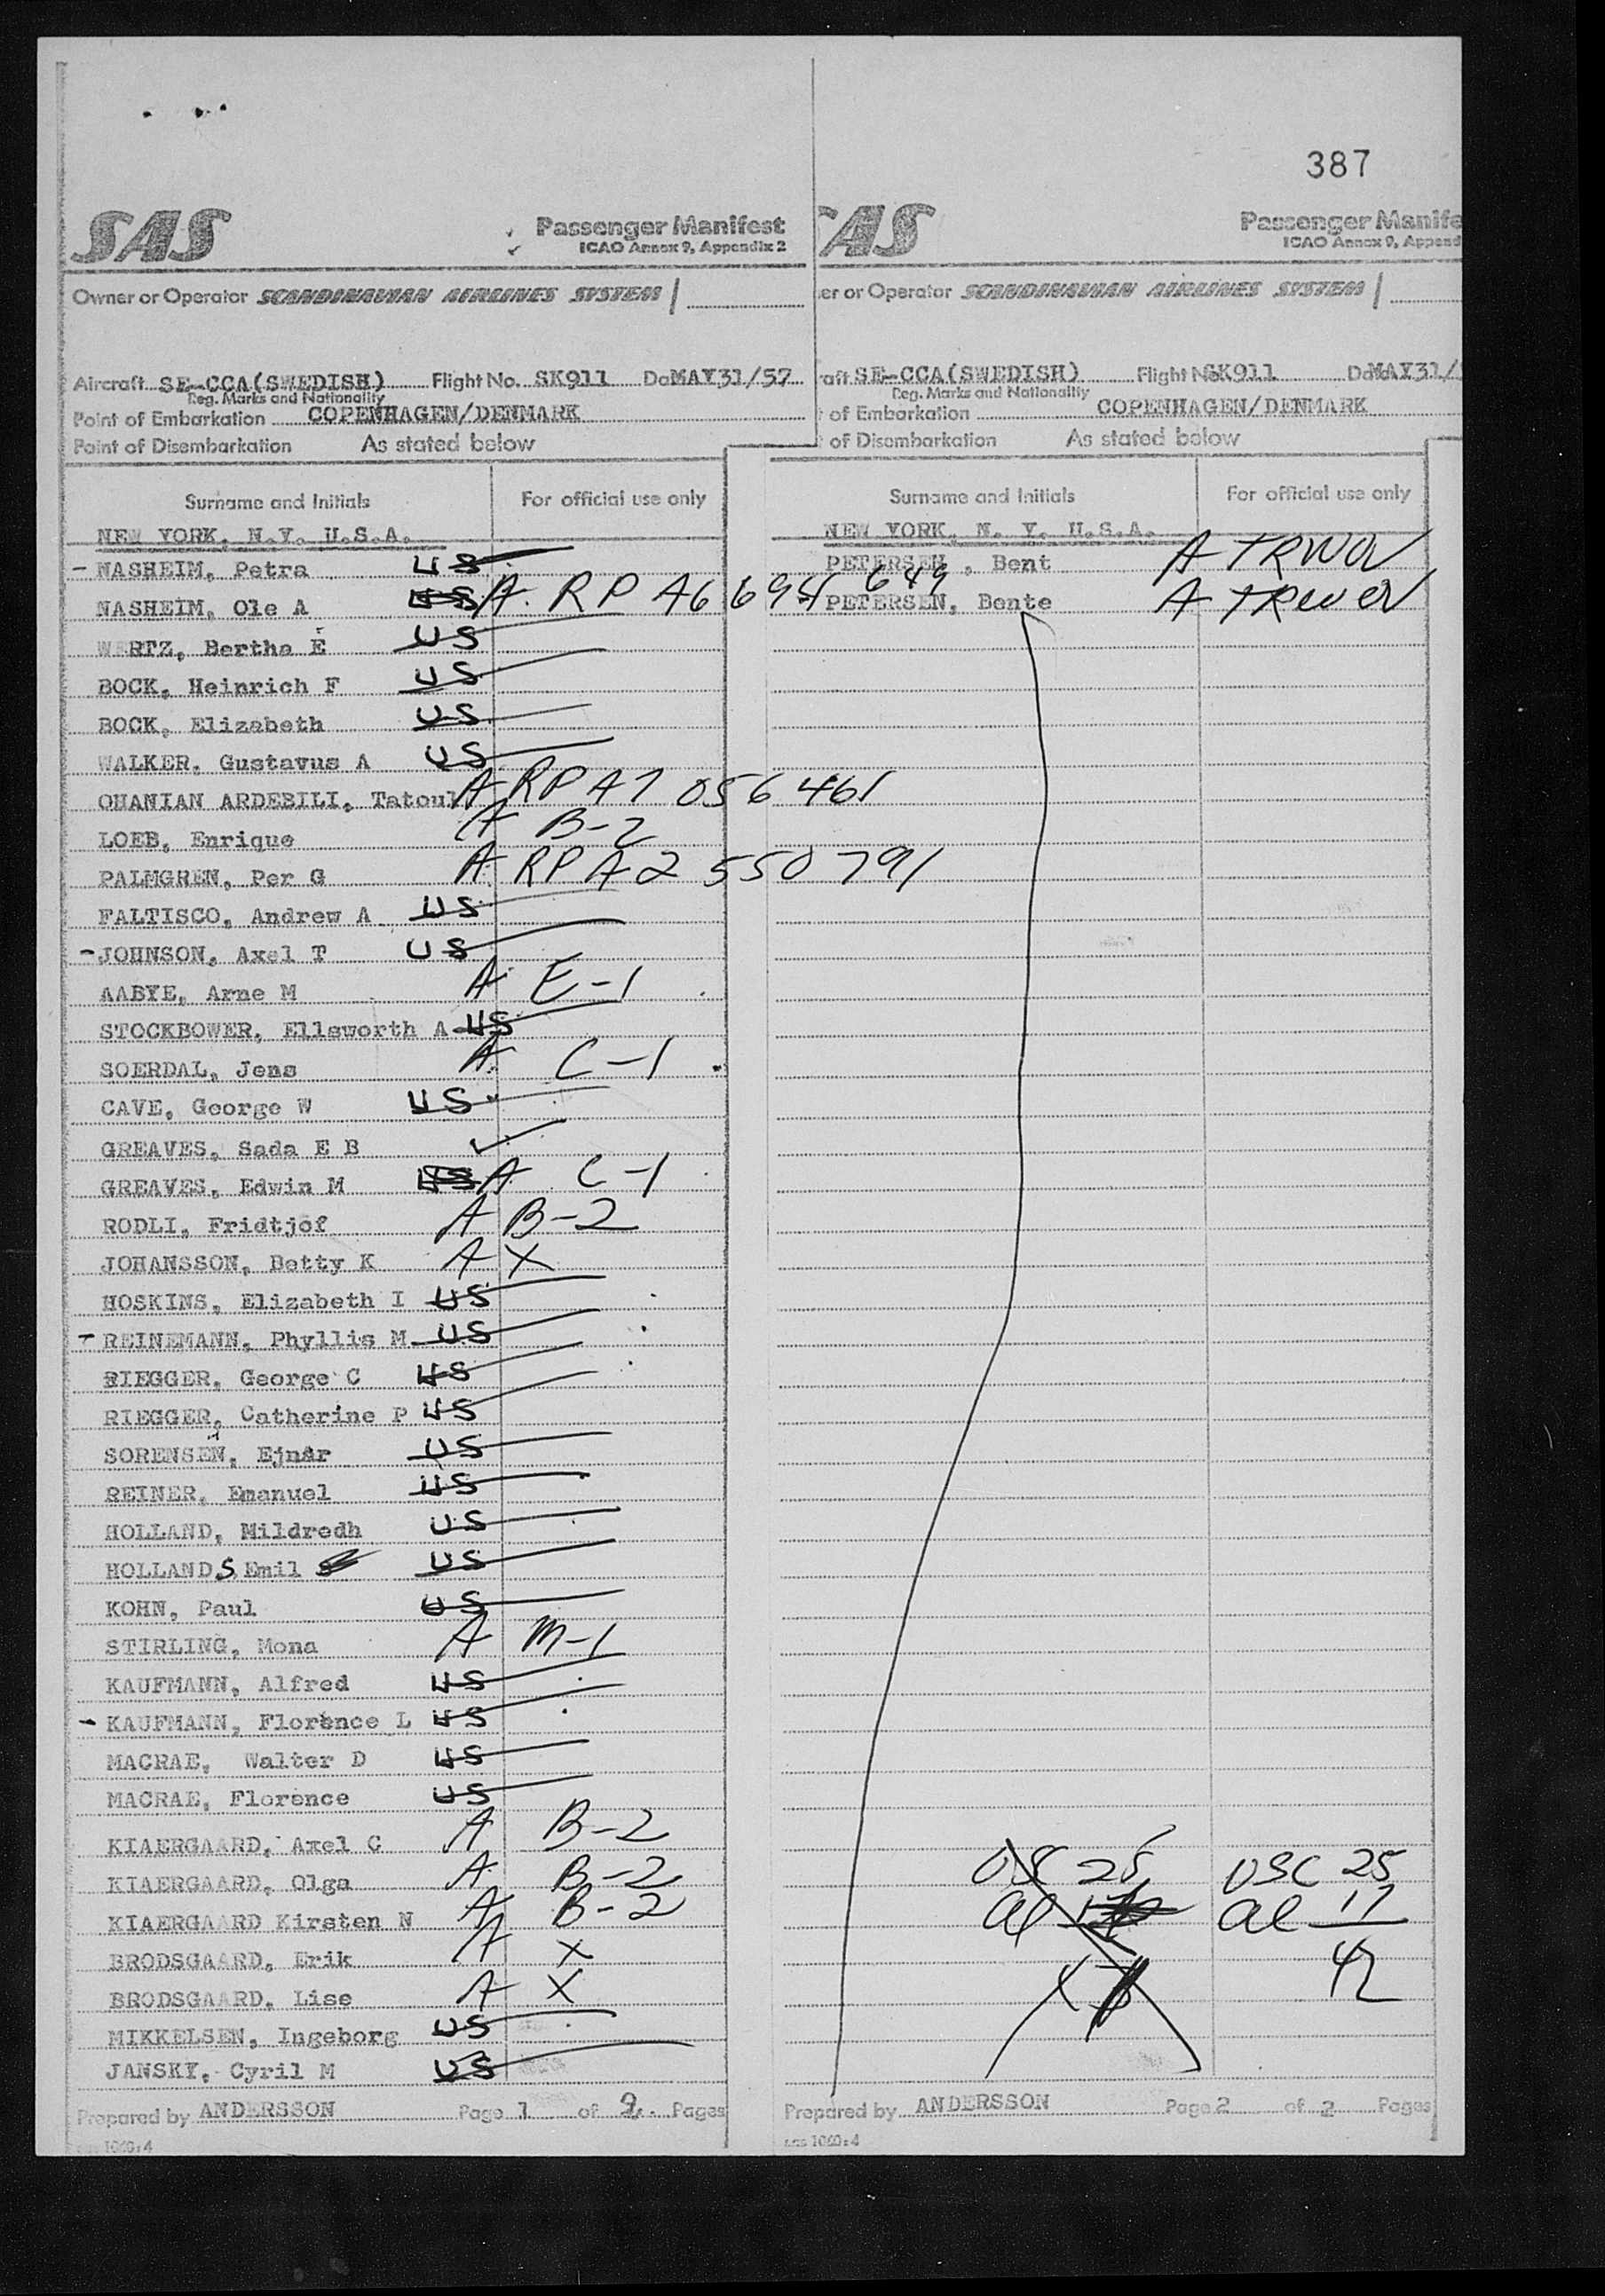 387
SAS
Passenger Manifest
ICAO Annex 9, Appendix 2
Owner or Operator SCANDINAVIAN AIRLINES SYSTEM
Aircraft SE-CCA(SWEDISH) Flight No. SK911 Da MAY31/57
Reg. Marks and Nationality
Point of Embarkation COPENHAGEN/DENMARK
Point of Disembarkation As stated below
Surname and Initials For official use only
NEW YORK, N.Y. U.S.A.
- NASHEIM, Petra US
NASHEIM, Ole A US A. RP A6 695 649
WERTZ, Bertha E US
BOCK, Heinrich F US
BOCK, Elizabeth US
WALKER, Gustavus A US
OHANIAN ARDEBILI, Tatoul A RP A7 056 461
LOEB, Enrique A B-2
PALMGREN, Per G A RP A2 550 791
FALTISCO, Andrew A US
- JOHNSON, Axel T US
AABYE, Arne M A E-1
STOCKBOWER, Ellsworth A US
SOERDAL, Jens A C-1
CAVE, George W US
GREAVES, Sada E B ✓
GREAVES, Edwin M US A C-1
RODLI, Fridtjof A B-2
JOHANSSON, Betty K A X
HOSKINS, Elizabeth I US
- REINEMANN, Phyllis M US
RIEGGER, George C US
RIEGGER, Catherine P US
SORENSEN, Ejnar US
REINER, Emanuel US
HOLLAND, Mildredh US
HOLLANDS Emil US
KOHN, Paul US
STIRLING, Mona A M-1
KAUFMANN, Alfred US
- KAUFMANN, Florence L US
MACRAE, Walter D US
MACRAE, Florence US
KIAERGAARD, Axel C A B-2
KIAERGAARD, Olga A B-2
KIAERGAARD Kirsten N A B-2
BRODSGAARD, Erik A X
BRODSGAARD, Lise A X
MIKKELSEN, Ingeborg US
JANSKY, Cyril M US
Prepared by ANDERSSON Page 1 of 2 Pages
sas 1060:4
AS
Passenger Manife
ICAO Annex 9, Append
er or Operator SCANDINAVIAN AIRLINES SYSTEM
raft SE-CCA(SWEDISH) Flight No SK911 Da MAY31/
Reg. Marks and Nationality
of Embarkation COPENHAGEN/DENMARK
of Disembarkation As stated below
Surname and Initials For official use only
NEW YORK, N. Y. U.S.A.
PETERSEN, Bent A TRWOV
PETERSEN, Bente A TRWOV
US 25 USC 25
al al 17
42
Prepared by ANDERSSON Page 2 of 2 Pages
sas 1060:4